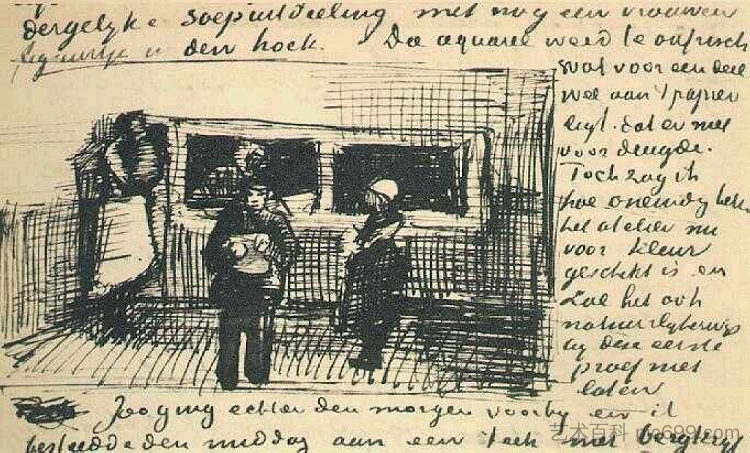 dergelyke soepuitdeeling met nog een vrouwen
figuurtje in den hoek. Die aquarel werd te onfrisch
wat voor een deel
wel aan 't papier
ligt. dat er niet
voor deugde.
Toch zag ik
hoe oneindig
het atelier nu
voor kleur
geschikt is en
zal het ook
natuurlykerwys
by deze eerste
proef niet
laten
Zoo ging echter den morgen voorby en ik
besteedde den middag aan een teek. met bergkryt
艺术百科 mc699.com